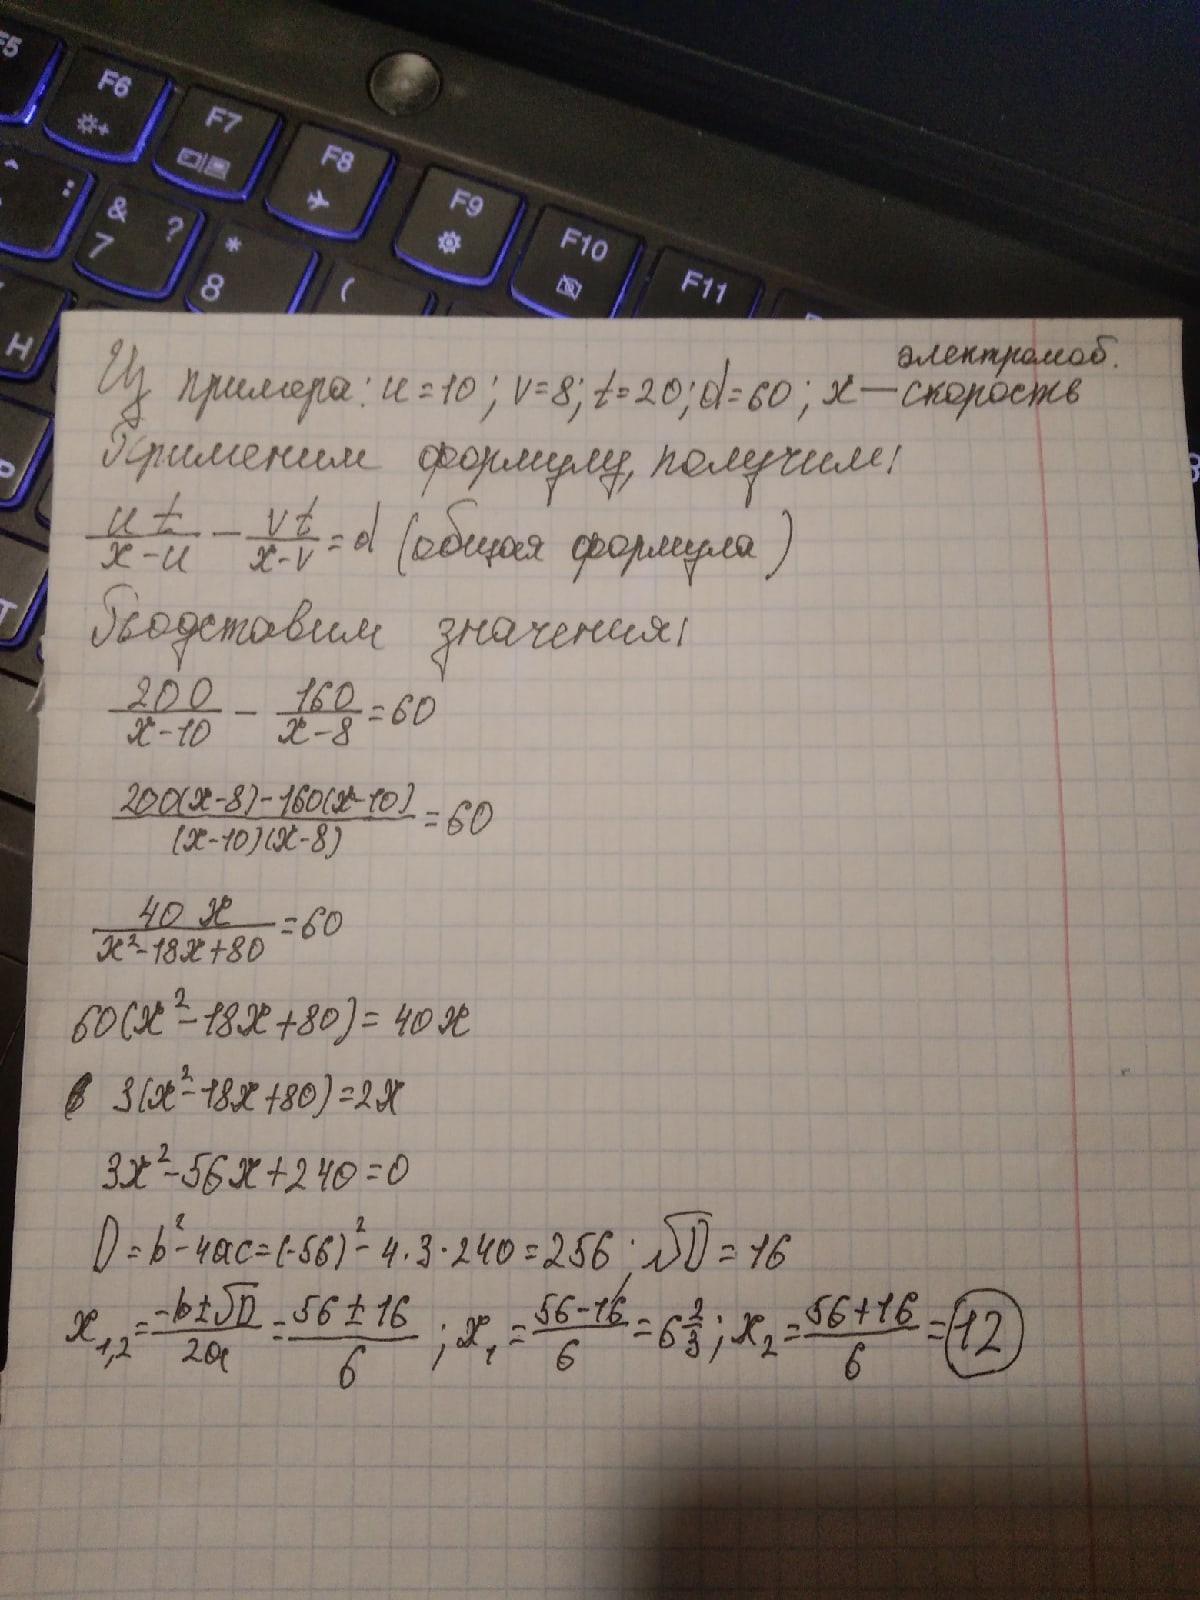 F5
F6
F7
F8
F9
F10
F11
& ?
7
*
8
(
:
^
Н
H
Р
Т
электромоб.
Из примера: u=10; v=8; t=20; d=60; x — скорость
Применим формулу, получим:
ut/(x-u) - vt/(x-v) = d (общая формула)
Подставим значения:
200/(x-10) - 160/(x-8) = 60
(200(x-8)-160(x-10))/((x-10)(x-8)) = 60
40x/(x²-18x+80) = 60
60(x²-18x+80) = 40x
3(x²-18x+80)=2x
3x²-56x+240=0
D=b²-4ac=(-56)²-4·3·240=256; √D=16
x₁,₂ = (-b±√D)/2a = (56±16)/6; x₁ = (56-16)/6 = 6 2/3; x₂ = (56+16)/6 = 12